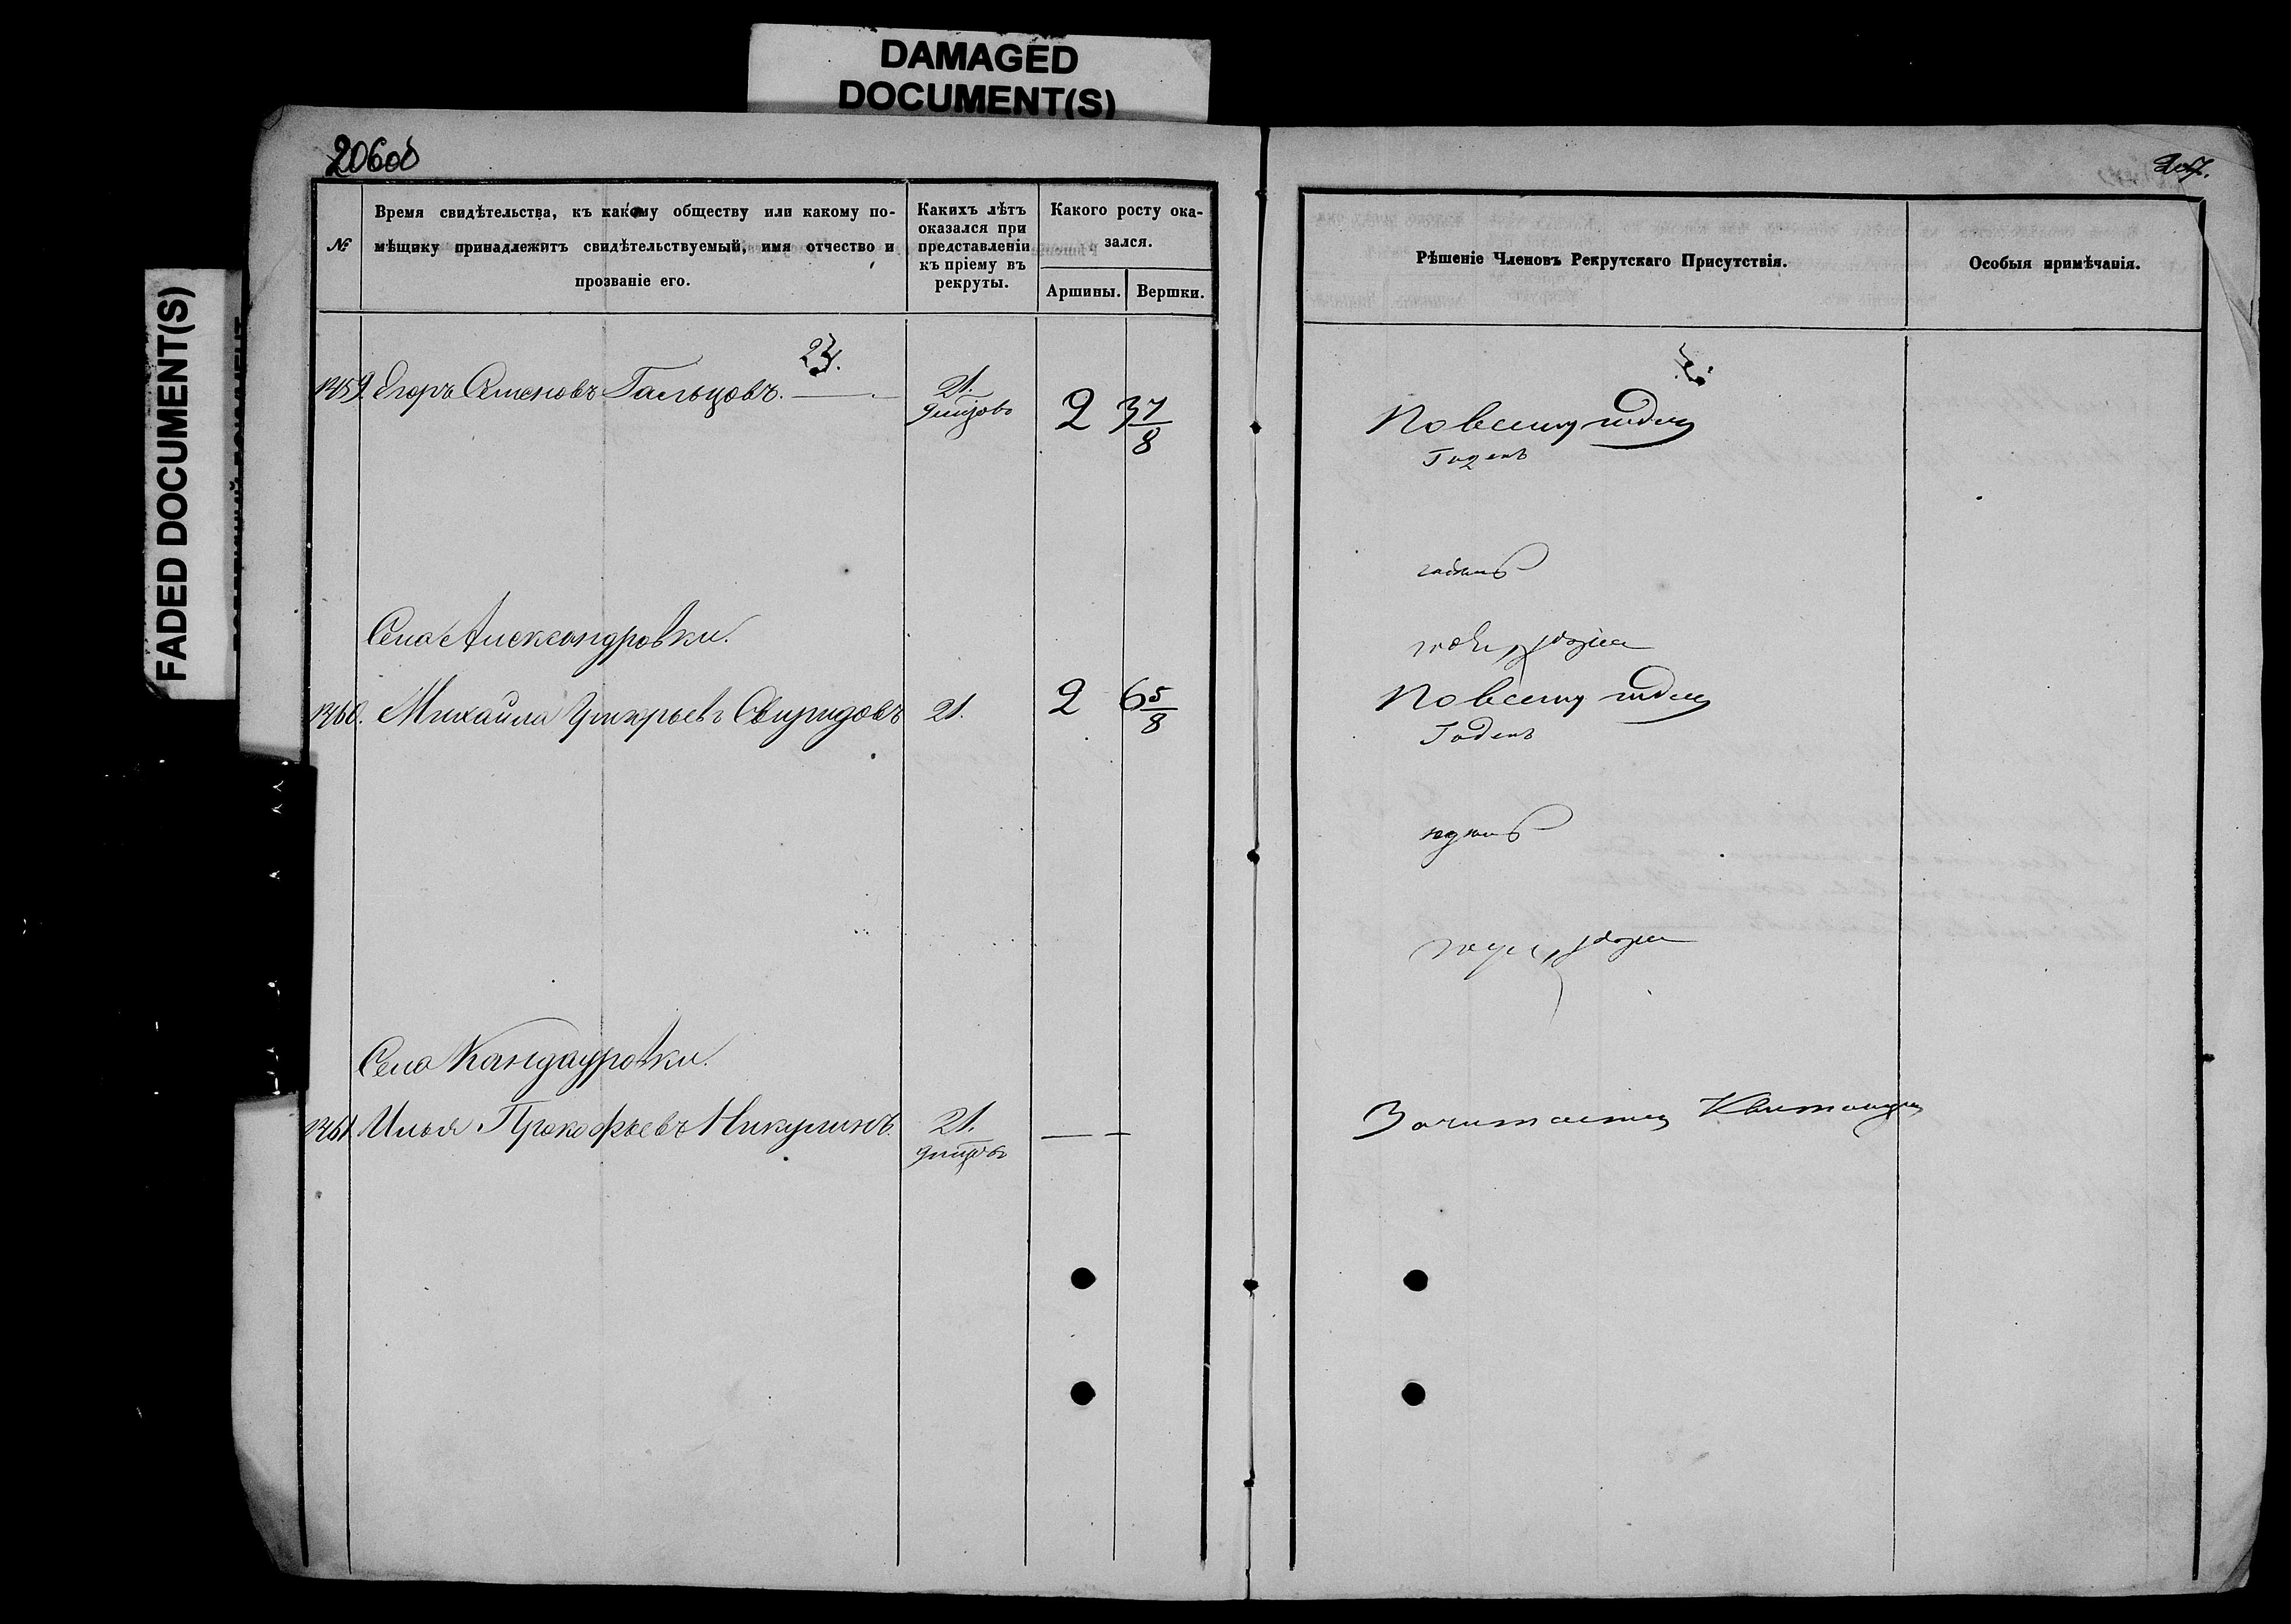 DAMAGED
DOCUMENT(S)
FADED DOCUMENT(S)
206об
207.
№
Время свидѣтельства, къ какому обществу или какому по-
мѣщику принадлежитъ свидѣтельствуемый, имя отчество и
прозваніе его.
Какихъ лѣтъ
оказался при
представленіи
къ пріему въ
рекруты.
Какого росту ока-
зался.
Аршины.
Вершки.
Рѣшеніе Членовъ Рекрутскаго Присутствія.
Особыя примѣчанія.
23.
1459. Егоръ Семеновъ Гальцовъ. 21. 2 3 7/8
По всему годенъ
Годенъ
годенъ
Села Александровки.
1460. Михайла Григорьевъ Свиридовъ 21. 2 6 5/8
По всему годенъ
Годенъ
годенъ
Села Кандауровки.
1461. Илья Прокофьевъ Никулинъ. 21. — —
Зачитается Квитанція